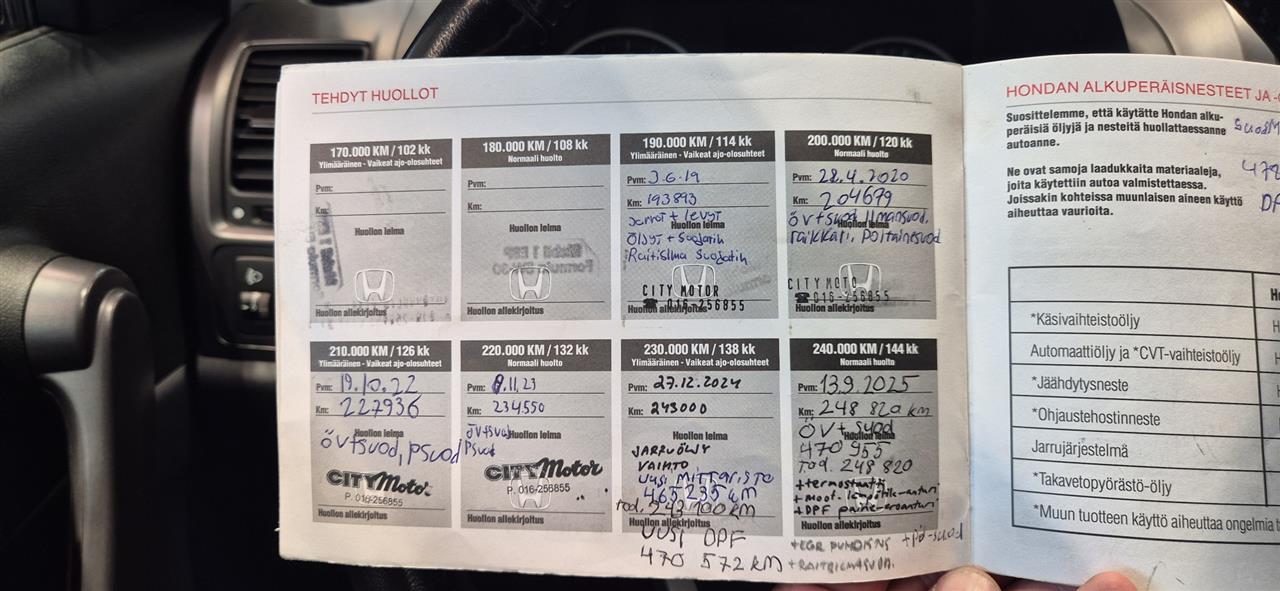 TEHDYT HUOLLOT
170.000 KM / 102 kk
Ylimääräinen - Vaikeat ajo-olosuhteet
Pvm:
Km:
Huollon leima
Huollon allekirjoitus
180.000 KM / 108 kk
Normaali huolto
Pvm:
Km:
Huollon leima
Huollon allekirjoitus
190.000 KM / 114 kk
Ylimääräinen - Vaikeat ajo-olosuhteet
Pvm: 3.6.19
Km: 193893
+ levyt
Huollon leima
Öljyt + Suodatin
Raitisilma Suodatin
CITY MOTOR
☎ 016-256855
Huollon allekirjoitus
200.000 KM / 120 kk
Normaali huolto
Pvm: 28.4.2020
Km: 204679
övtsuod, Ilmansuod,
Huollon leima
raikkari, Poltainesuod
CITY MOTO
☎ 016-256855
Huollon allekirjoitus
210.000 KM / 126 kk
Ylimääräinen - Vaikeat ajo-olosuhteet
Pvm: 19.10.22
Km: 227936
Huollon leima
övtsuod, psuod
CITY Motor
P. 016-256855
Huollon allekirjoitus
220.000 KM / 132 kk
Normaali huolto
Pvm: 8.11.23
Km: 234550
övtsuod
Huollon leima
Psuod
CITY Motor
P. 016-256855
Huollon allekirjoitus
230.000 KM / 138 kk
Ylimääräinen - Vaikeat ajo-olosuhteet
Pvm: 27.12.2024
Km: 243000
Huollon leima
JARRUÖLJY
VAIHTO
UUSI MITTARISTO
465235 km
tod. 243 100 km
Huollon allekirjoitus
UUSI DPF
470 572 km
240.000 KM / 144 kk
Normaali huolto
Pvm: 13.9.2025
Km: 248 820 km
ÖV + suod
Huollon leima
470 955
tod. 248 820
+termostaatti
+moot. lämpötila-anturi
+DPF paine-eroanturi
Huollon allekirjoitus
+EGR PUHDISTUS +pö-suod
+RAITISILMASUOD.
HONDAN ALKUPERÄISNESTEET JA
Suosittelemme, että käytätte Hondan alku-
peräisiä öljyjä ja nesteitä huollattaessanne
autoanne.
Ne ovat samoja laadukkaita materiaaleja,
joita käytettiin autoa valmistettaessa.
Joissakin kohteissa muunlaisen aineen käyttö
aiheuttaa vaurioita.
*Käsivaihteistoöljy
Automaattiöljy ja *CVT-vaihteistoöljy
*Jäähdytysneste
*Ohjaustehostinneste
Jarrujärjestelmä
*Takavetopyörästö-öljy
*Muun tuotteen käyttö aiheuttaa ongelmia